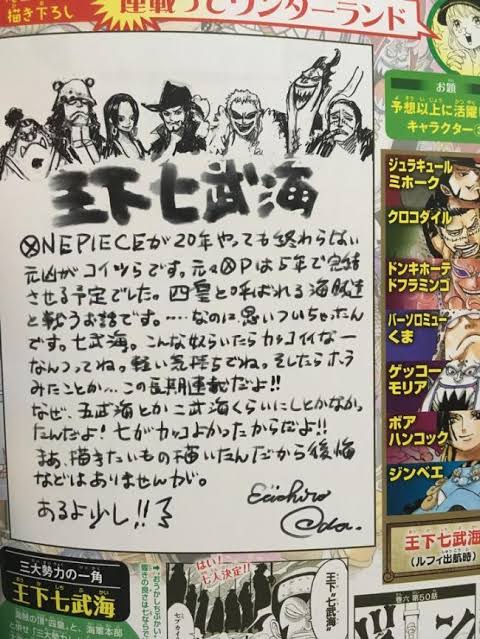 描き下ろし
連載つてワンダーランド
王下七武海
ONEPIECEが20年やっても終わらない
元凶がコイツらです。元々OPは5年で完結
させる予定でした。四皇と呼ばれる海賊達
と戦うお話です。……なのに思いついちゃったん
です。七武海。こんな奴らいたらカッコイイなー
なんつってね。軽い気持ちでね。そしたらホラ
みたことか…この長期連載だよ!!
なぜ、五武海とか二武海くらいにしとかなかっ
たんだよ!七がカッコよかったからだよ!!
まあ、描きたいもの描いたんだから後悔
などはありませんが。
あるよ少し!!
Eiichiro
Oda.
お題
予想以上に活躍
キャラクター
ジュラキュール
ミホーク
クロコダイル
ドンキホーテ
ドフラミンゴ
バーソロミュー
くま
ゲッコー
モリア
ボア
ハンコック
ジンベエ
王下七武海
(ルフィ出航時)
三大勢力の一角
王下七武海
はい!
七人決定!!
王下“七武海”
巻六 第50話